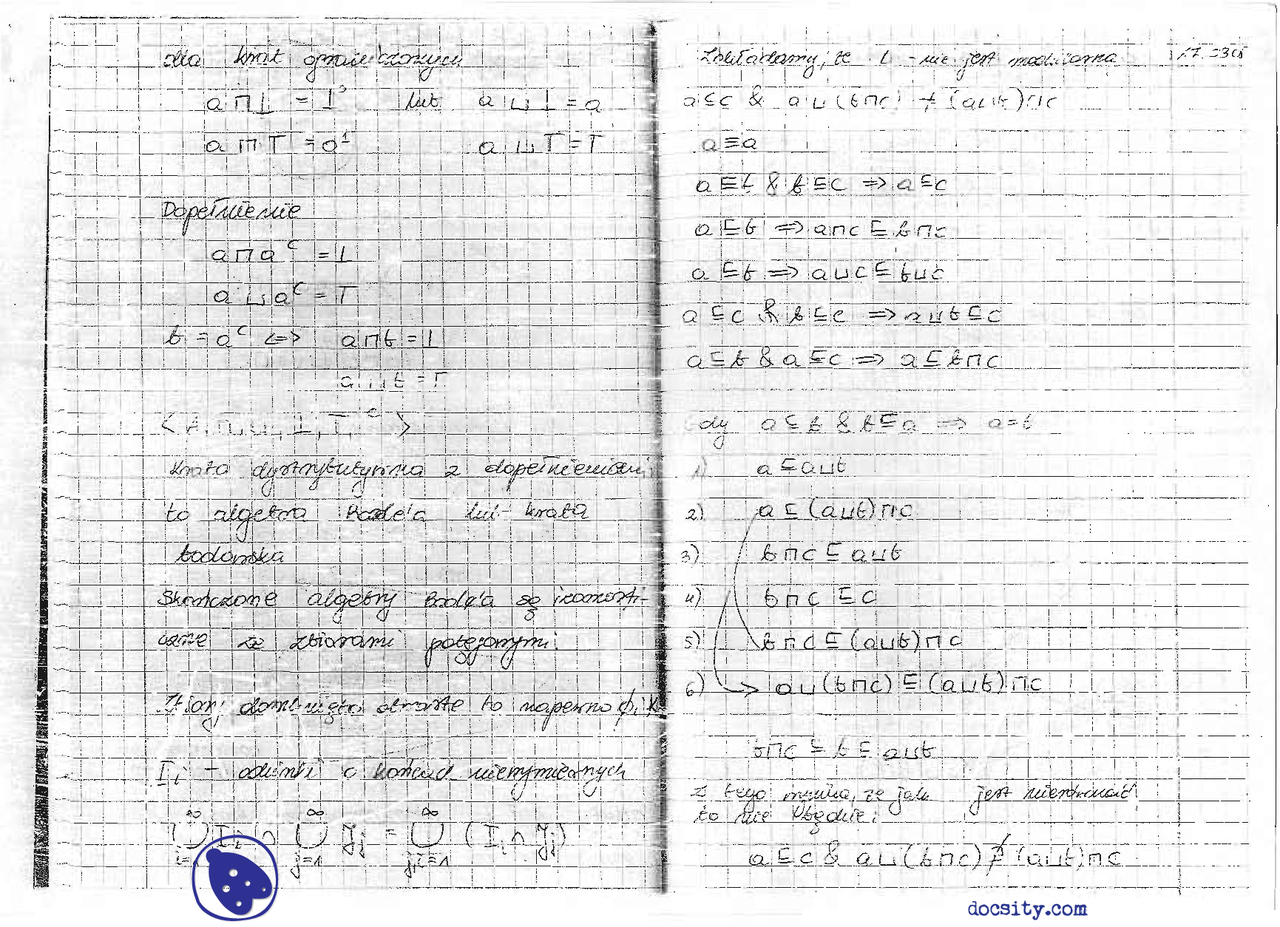 dla krat ograniczonych
a ⊓ ⊥ = ⊥ lub a ⊔ ⊥ = a
a ⊓ ⊤ = a a ⊔ ⊤ = ⊤
Dopełnienie
a ⊓ aᶜ = ⊥
a ⊔ aᶜ = ⊤
b = aᶜ ⇔ a ⊓ b = ⊥
a ⊔ b = ⊤
< A, ⊓, ⊔, ⊥, ⊤, ᶜ >
krata dystrybutywna z dopełnieniami
to algebra Boole'a lub krata
boolowska
Skończone algebry Boole'a są izomorfi-
czne ze zbiorami potęgowymi.
Zbiory domknięto otwarte to napewno ∅, X
Iᵢ – odcinki o końcach niewymiernych
∞ ∞ ∞
⋃ Iᵢ ∩ ⋃ Jⱼ = ⋃ (Iᵢ ∩ Jⱼ)
i=1 j=1 j,i=1
Zakładamy, że L – nie jest modularna
a ⊑ c & a ⊔ (b ⊓ c) ≠ (a ⊔ b) ⊓ c
a ⊑ a
a ⊑ b & b ⊑ c ⇒ a ⊑ c
a ⊑ b ⇒ a ⊓ c ⊑ b ⊓ c
a ⊑ b ⇒ a ⊔ c ⊑ b ⊔ c
a ⊑ c & b ⊑ c ⇒ a ⊔ b ⊑ c
a ⊑ b & a ⊑ c ⇒ a ⊑ b ⊓ c
Gdy a ⊑ b & b ⊑ a ⇒ a = b
1) a ⊑ a ⊔ b
2) a ⊑ (a ⊔ b) ⊓ c
3) b ⊓ c ⊑ a ⊔ b
4) b ⊓ c ⊑ c
5) b ⊓ c ⊑ (a ⊔ b) ⊓ c
6) a ⊔ (b ⊓ c) ⊑ (a ⊔ b) ⊓ c
b ⊓ c ⊑ b ⊑ a ⊔ b
z tego wynika, że jak jest
to nie będzie:
a ⊑ c & a ⊔ (b ⊓ c) (a ⊔ b) ⊓ c
docsity.com